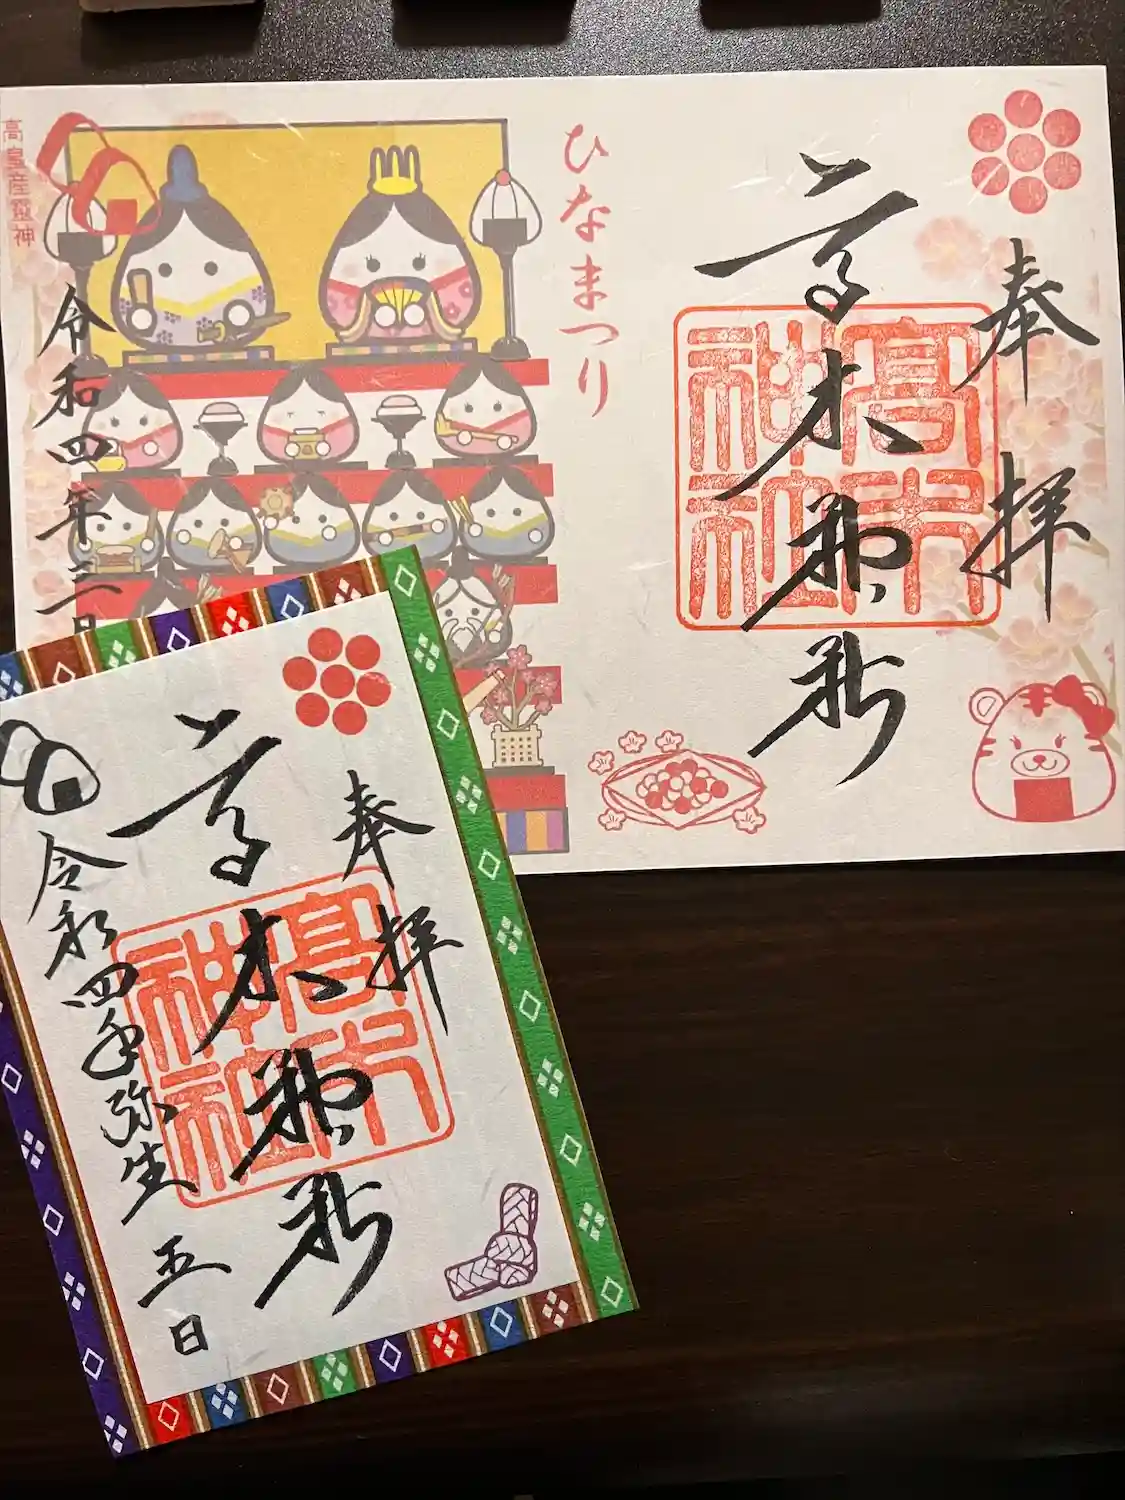 奉拝
高木神社
高木神社
ひなまつり
令和四年三月
高皇産霊神
奉拝
高木神社
高木神社
令和四年弥生五日